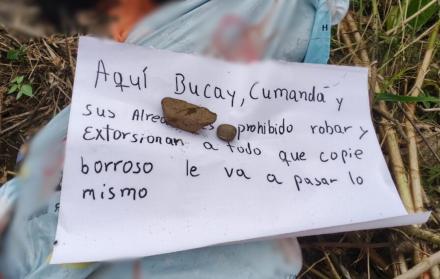 Aquí Bucay, Cumandá y
sus prohibido robar y
Extorsionan a todo que copie
borroso le va a pasar lo
mismo
H